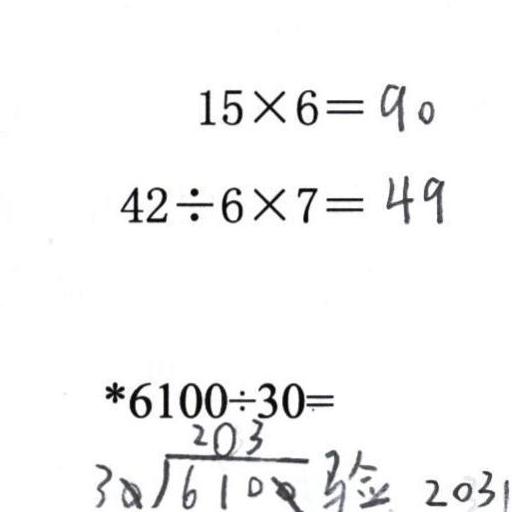 15×6=90
42÷6×7=49
*6100÷30=
203
30)6100 验 203